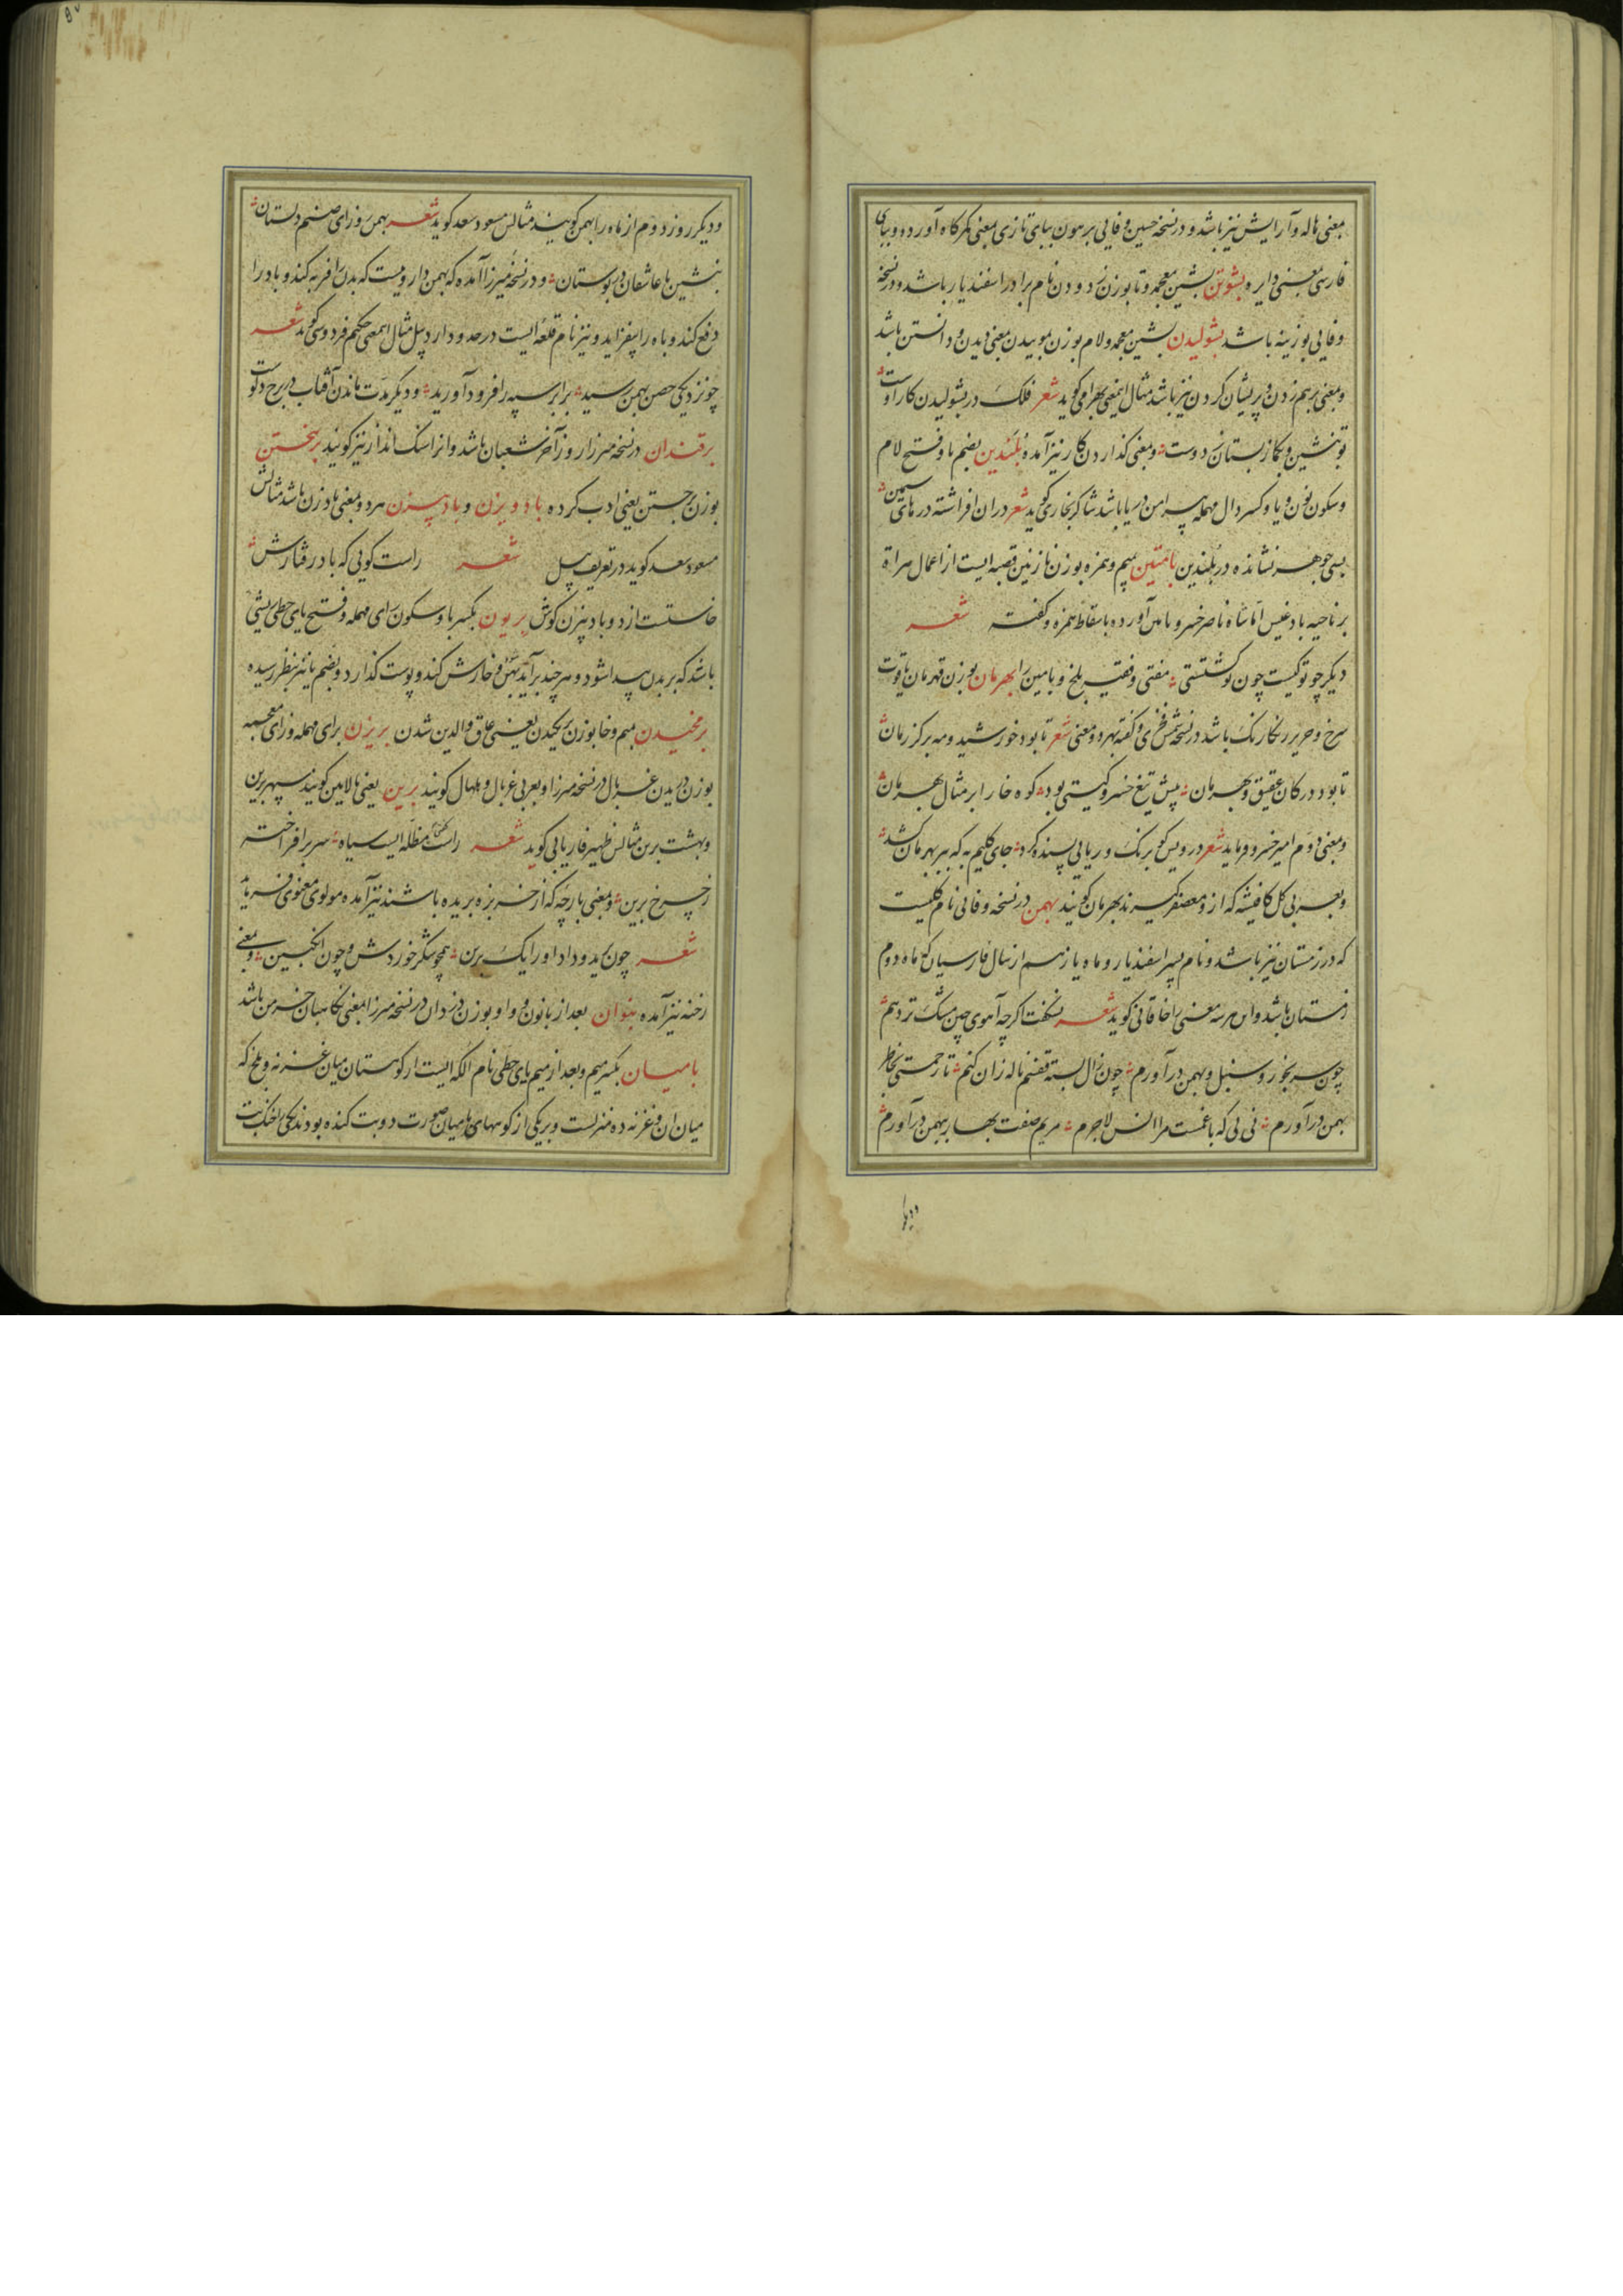 معنی هاله و آرایش نیز باشد و در نسخه حسین وفایی برهون ببای تازی بمعنی کمرکاه آورده و ببای
فارسی بمعنی دایره بشوتن بشین معجمه و تا بوزن نام برادر اسفندیار باشد و در نسخه
وفایی بوزینه باشد بشولیدن بشین معجمه و لام بوزن موییدن بمعنی دیدن و دانستن باشد
و بمعنی برهم زدن و پریشان کردن نیز باشد مثال اینمعنی بهرامی کوید شعر فلک در بشولیدن کار اوست
تو بنشین و بکاز بستان ز دوست و بمعنی کذاردن کار نیز آمده بلندین بضم با و فتح لام
و سکون نون و یا و کسر دال مهمله پیرامن در باشد شاکر بخاری کوید شعر دران افراشته درهای سیمین
بسی جوهر نشانده در بلندین بامئین بمیم و همزه بوزن نازنین قصبه ایست از اعمال هراة
بر ناحیه بادغیس اما شاه ناصر خسرو بامن آورده باسقاط همزه و کفته شعر
دیکر چو تو کیست چون تو کشتستی مفتی و فقیه بلخ و بامین را بهرمان بوزن قهرمان یاقوت
سرخ و حریر رنکارنک باشد در نسخه شمس فخری و کفته بهر دو معنی شعر تا بود خورشید و مه بر کرزمان
تا بود در کان عقیق و بهرمان پیش تیغ خسرو کیتی بود کوه خارا بر مثال بهرمان
و معنی دوم امیر خسرو فرماید شعر درویش کو برنک و ریایی پسنده کرد جای کلیم به که ببر بهرمان کشد
و بعربی کل کافیشه که ازو معصفر کیرند بهرمان کویند بهمن در نسخه وفائی نام کلیست
که در زمستان نیز باشد و نام پسر اسفندیار و ماه یازدهم از سال فارسیان که ماه دوم
زمستان باشد و این هر سه معنی را خاقانی کوید شعر نکفت اکرچه آهوی چین مشک تر دهم
چون سر بخور و سنبل و بهمن درآورم چون زال بسته قفسم ناله زان کنم تا رحمتی بخاطر
بهمن درآورم نی نی که با غمست مرا انس لاجرم مریم صفت بهار ببهمن درآورم
و دیکر روز دوم از ماه را بهمن کویند مثالش مسعود سعد کوید شعر بهمن روز ای صنم دلستان
بنشین با عاشقان در بوستان و در نسخه میرزا آمده که بهمن دارویست که بدن را فربه کند و باد را
دفع کند و باه را بیفزاید و نیز نام قلعه ایست در حدود اردبیل مثال اینمعنی حکیم فردوسی کوید شعر
چو نزدیکی حصن بهمن رسید برابر سپه را فرود آورید و دیکر مدت ماندن آفتاب در برج دلوست
برقندان در نسخه میرزا روز آخر شعبان باشد و انرا سنک انداز نیز کویند برهختن
بوزن برجستن یعنی ادب کرده بادویزن و بادبیزن هر دو بمعنی بادزن باشد مثالش
مسعود سعد کوید در تعریف پیل شعر راست کویی که باد رفتارش
خاستست از دو بادبیزن کوش بریون بکسر با و سکون رای مهمله و فتح یای حطی ریشی
باشد که بر بدن پیدا شود و هر چند برآید پهن و خارش کند و پوست کذارد و بضم یا نیز بنظر رسیده
برمخیدن بمیم و خا بوزن یعنی عاق والدین شدن بریزن برای مهمله و زای معجمه
بوزن دریدن غربال در نسخه میرزا و بعربی غربال و کویند برین یعنی بالایین کویند سپهر برین
و بهشت برین مثالش ظهیر فاریابی کوید شعر راست مظله ایست سیاه سر برافراخته
ز چرخ برین و بمعنی پارچه که از خربزه بریده باشند نیز آمده مولوی معنوی فرماید
شعر چون برید و داد او را یک برین همچو شکر خوردش و چون انکبین و بمعنی
رخنه نیز آمده بنوان بعد از با نون و واو بوزن در نسخه میرزا بمعنی نکاهبان خرمن باشد
بامیان بکسر میم و بعد از میم یای حطی نام الکه ایست از کوهستان میان غزنه و بلخ که
میان ان و غزنه ده منزلست و بر یکی از کوههای بامیان صورت دو بت کنده بودند یکی را خنک بت